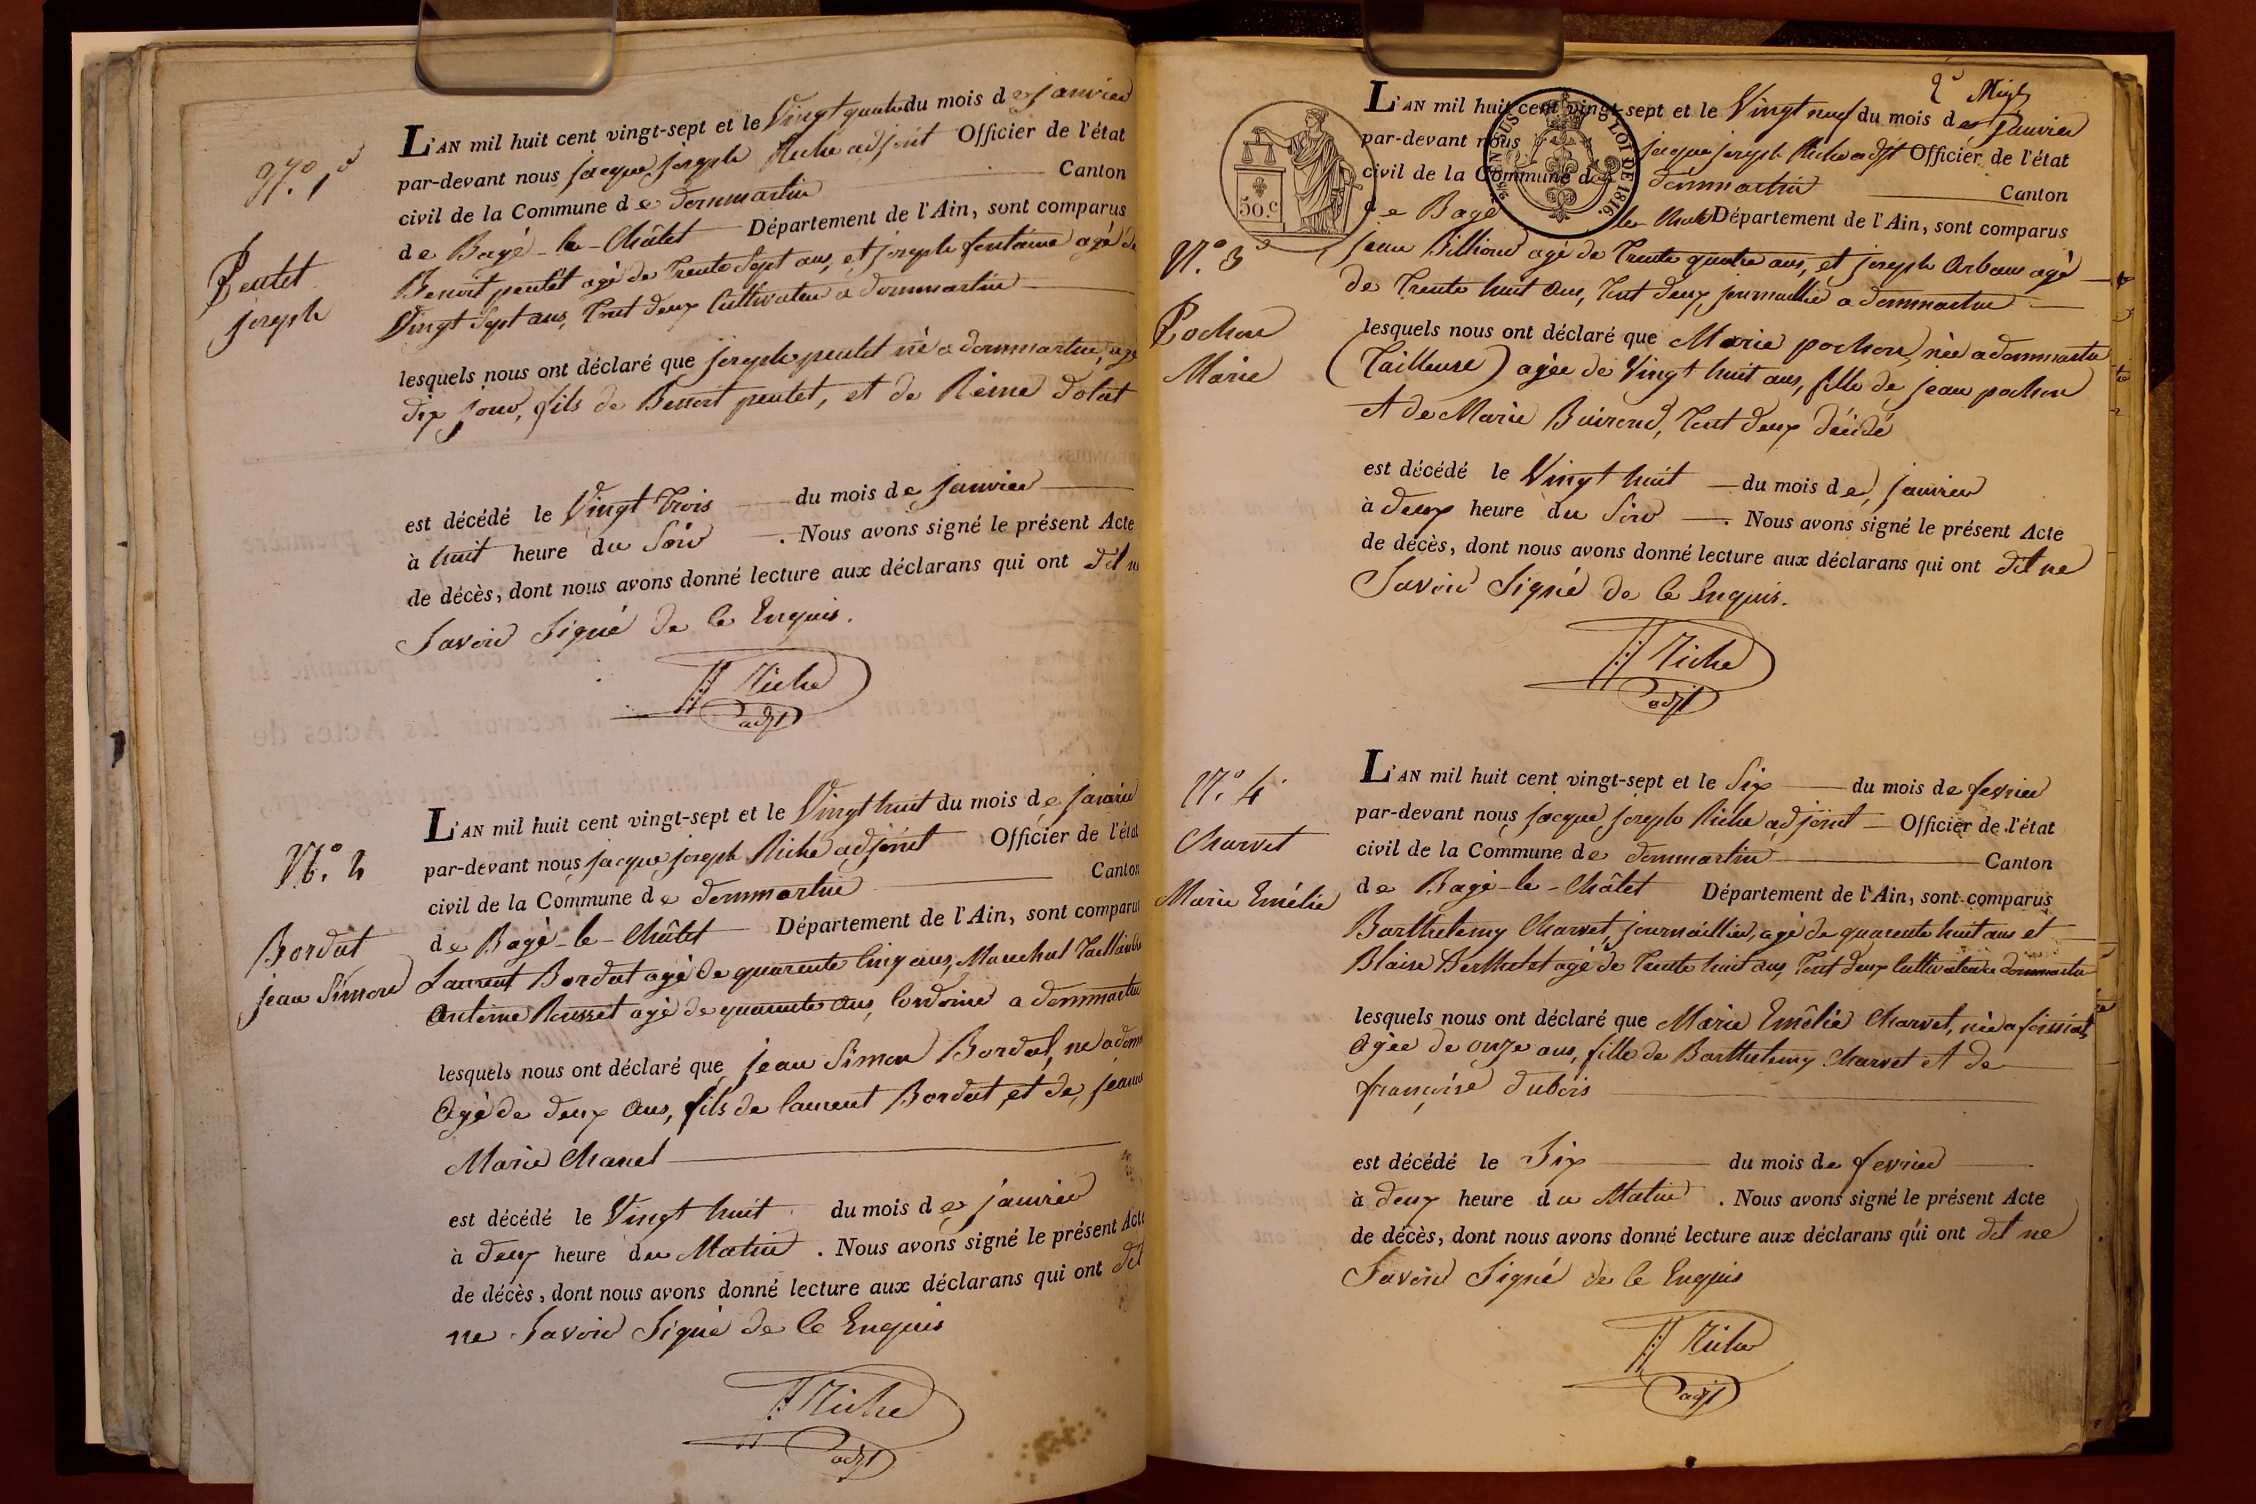 N.° 1.er
Peulet
joseph
L'AN mil huit cent vingt-sept et le Vingt quatre du mois de janvier
par-devant nous jacque joseph Riche adjoint Officier de l'état
civil de la Commune de dommartin Canton
de Bagé-le-Châtel Département de l'Ain, sont comparus
Benoit peulet agé de trente Sept ans, et joseph fontaine agé de
Vingt Sept ans, tout deux Cultivateur a dommartin
lesquels nous ont déclaré que joseph peulet né a dommartin, agé
dix jour, fils de Benoit peulet, et de Reine dolat
est décédé le Vingt trois du mois de janvier
à huit heure du Soir . Nous avons signé le présent Acte
de décès, dont nous avons donné lecture aux déclarans qui ont dit ne
Savoir Signé de ce Enquis.
Riche
adjt
N.° 2
Bordat
jean Simon
L'AN mil huit cent vingt-sept et le Vingt huit du mois de janvier
par-devant nous jacque joseph Riche adjoint Officier de l'état
civil de la Commune de dommartin Canton
de Bagé-le-Châtel Département de l'Ain, sont comparus
Laurent Bordat agé de quarente Cinq ans, Marechal
Antoine Rousset agé de quarente ans, Cordonier a dommartin
lesquels nous ont déclaré que jean Simon Bordat, né a dom
Agé de deux ans, fils de laurent Bordat, et de jeanne
Marie Chanel
est décédé le Vingt huit du mois de janvier
à deux heure du Matin . Nous avons signé le présent Acte
de décès, dont nous avons donné lecture aux déclarans qui ont dit
ne Savoir Signé de ce Enquis
Riche
adjt
50.c
LOI DE 1816.
N.° 3
Pochon
Marie
L'AN mil huit cent vingt-sept et le Vingt neuf du mois de janvier
par-devant nous jacque joseph Riche adjt Officier de l'état
civil de la Commune de dommartin Canton
de Bagé le Chatel Département de l'Ain, sont comparus
jean Billioud agé de trente quatre ans, et joseph Arbant agé
de trente huit ans, tout deux journaillier a dommartin
lesquels nous ont déclaré que Marie pochon, née a dommartin
(Tailleuse) agée de Vingt huit ans, fille de jean pochon
et de Marie Buiron, tout deux décédé
est décédé le Vingt huit du mois de janvier
à deux heure du Soir . Nous avons signé le présent Acte
de décès, dont nous avons donné lecture aux déclarans qui ont dit ne
Savoir Signé de ce Enquis.
Riche
adjt
N.° 4
Charvet
Marie Emélie
L'AN mil huit cent vingt-sept et le Six du mois de fevrier
par-devant nous jacque joseph Riche adjoint Officier de l'état
civil de la Commune de dommartin Canton
de Bagé-le-Châtel Département de l'Ain, sont comparus
Barthelemy Charvet, journaillier, agé de quarente huit ans et
Blaise Berthelet agé de trente huit ans, tout deux Cultivateur a dommartin
lesquels nous ont déclaré que Marie Emélie Charvet, née a foissiat,
Agée de onze ans, fille de Barthelemy Charvet et de
françoise dubois
est décédé le Six du mois de fevrier
à deux heure du Matin . Nous avons signé le présent Acte
de décès, dont nous avons donné lecture aux déclarans qui ont dit ne
Savoir Signé de ce Enquis
Riche
adjt